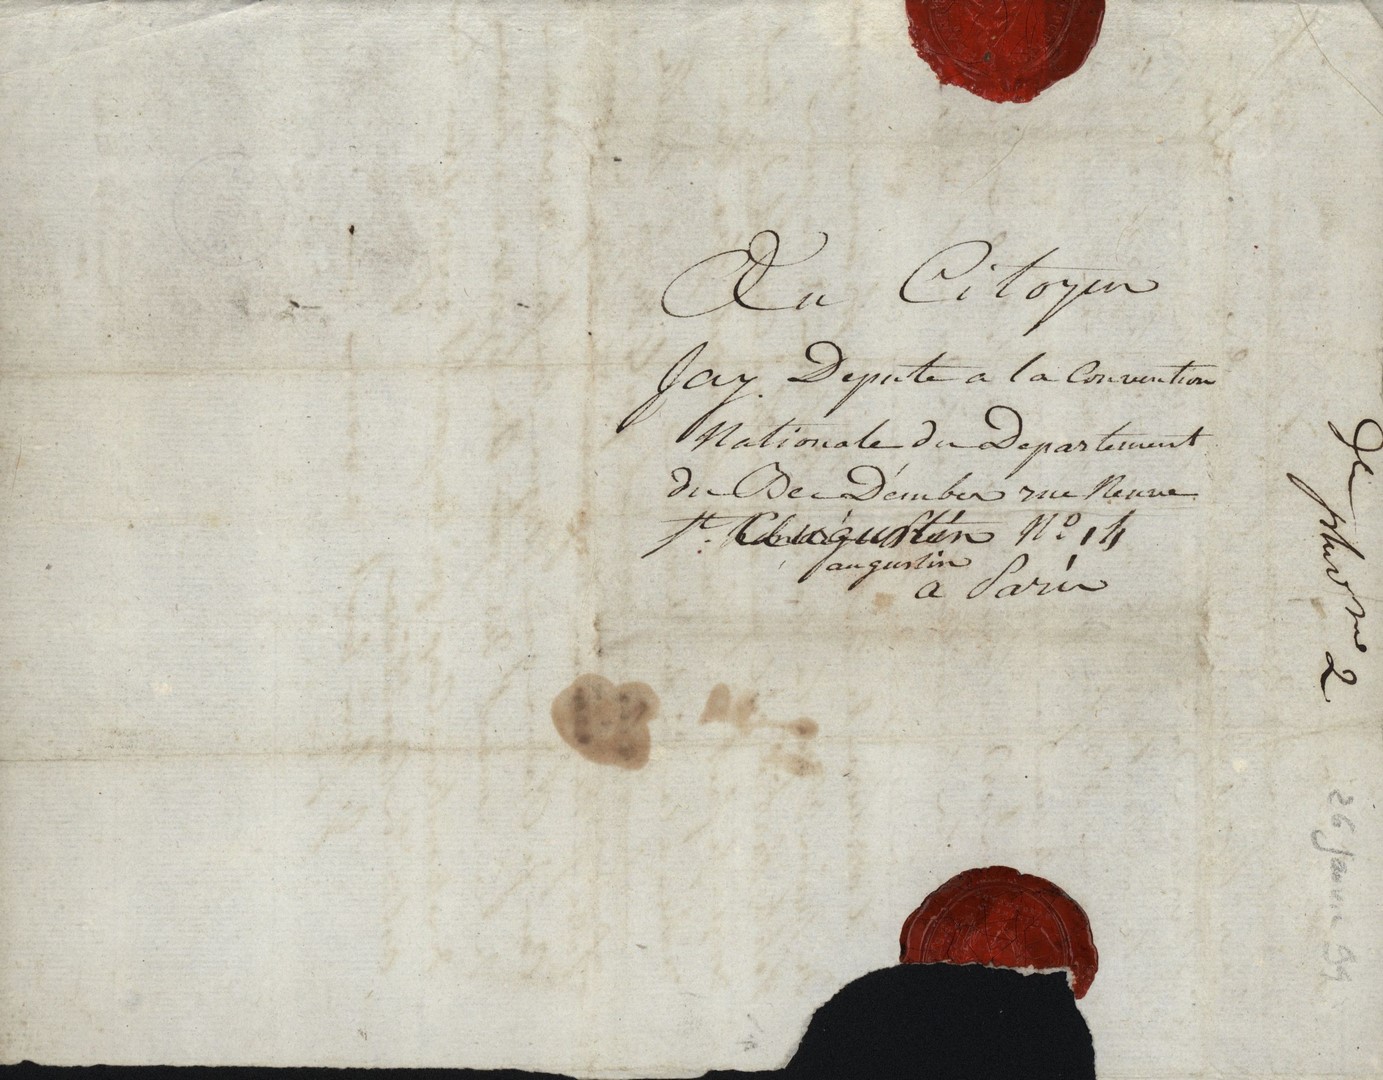 Au Citoyen
Jay Depute a la Convention
Nationale du Departement
du Bec Dember rue Neuve
St. augustin No. 14
augustin
a Paris
De pluvose 2
26 Janvier 94